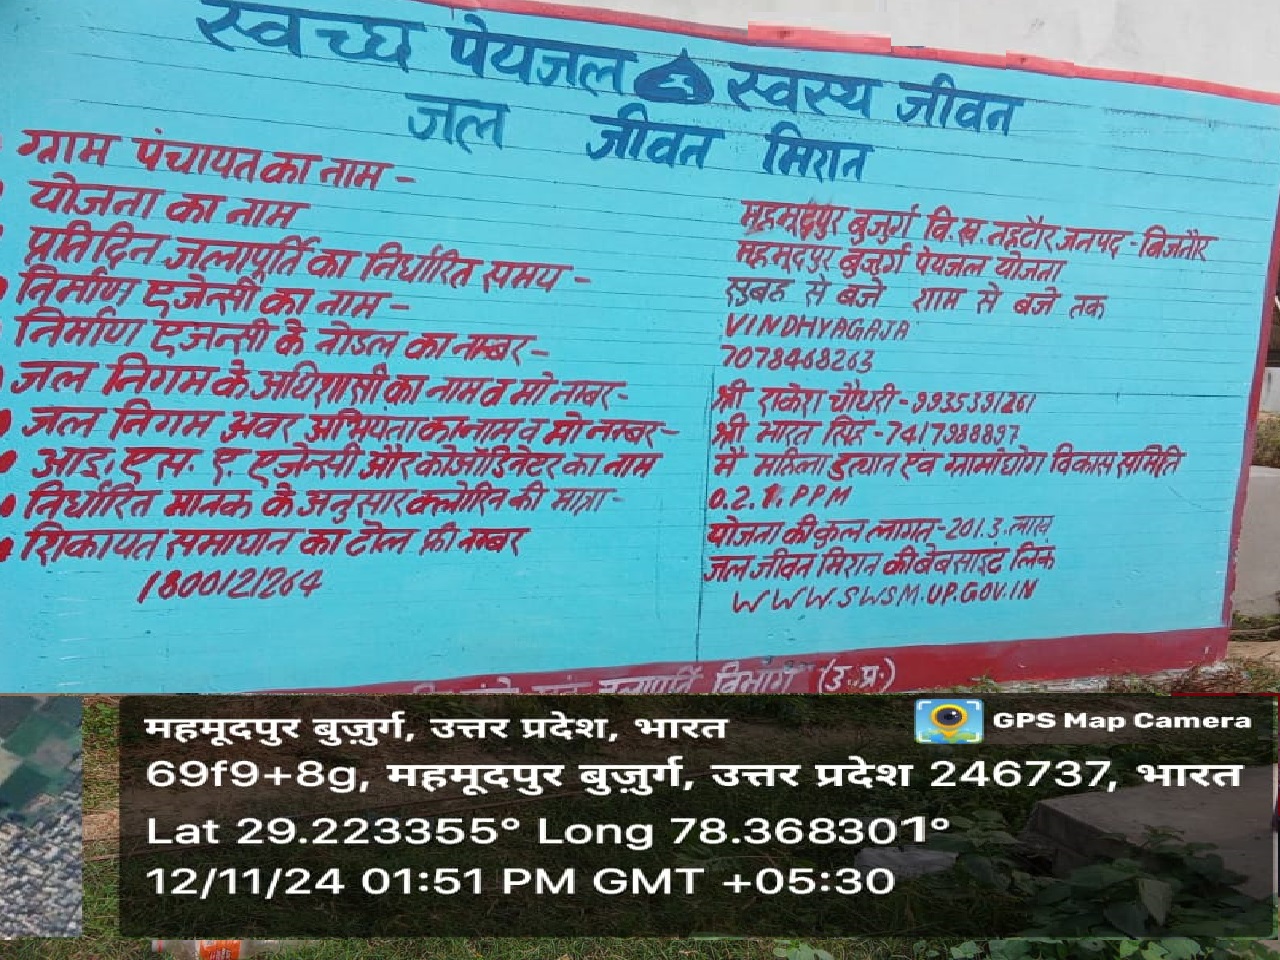 स्वच्छ पेयजल स्वस्थ जीवन
जल जीवन मिशन
ग्राम पंचायत का नाम - महमूदपुर बुजुर्ग वि.ख. नहटौर जनपद - बिजनौर
योजना का नाम महमूदपुर बुजुर्ग पेयजल योजना
प्रतिदिन जलापूर्ति का निर्धारित समय - सुबह से बजे शाम से बजे तक
निर्माण एजेन्सी का नाम - VINDHYAGAJA
निर्माण एजन्सी के नोडल का नम्बर - 7078468263
जल निगम के अधिशासी का नाम व मो नम्बर - श्री राकेश चौधरी - 9935391261
जल निगम अवर अभियंता का नाम व मो नम्बर - श्री भारत सिंह - 7417988897
आइ. एस. ए. एजेन्सी और कोऑडिनेटर का नाम मै महिला डुत्थान एवं ग्रामोद्योग विकास समिति
निर्धारित मानक के अनुसार क्लोरिन की मात्रा - 0.2.1. PPM
शिकायत समाधान का टोल फ्री नम्बर योजना की कुल लागत - 201.3. लाख
180012/264 जल जीवन मिशन की बेबसाइट लिंक
WWW.SWSM.UP.GOV.IN
विभाग (उ.प्र.)
GPS Map Camera
महमूदपुर बुज़ुर्ग, उत्तर प्रदेश, भारत
69f9+8g, महमूदपुर बुज़ुर्ग, उत्तर प्रदेश 246737, भारत
Lat 29.223355° Long 78.368301°
12/11/24 01:51 PM GMT +05:30